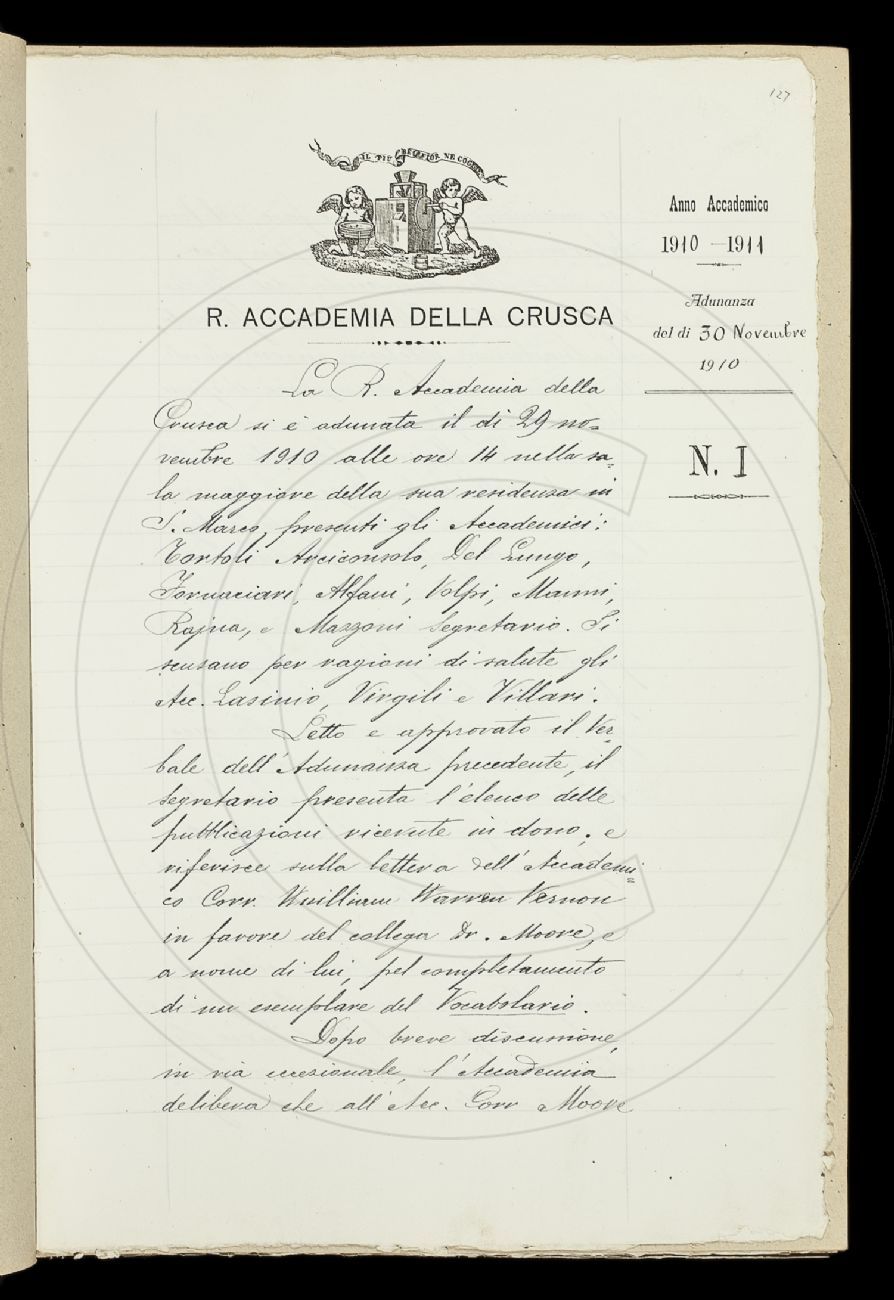 127
IL PIÙ BEL FIOR NE COGLIE
R. ACCADEMIA DELLA CRUSCA
Anno Accademico
1910-1911
Adunanza
del dì 30 Novembre
1910
N. I
La R. Accademia della
Crusca si è adunata il dì 29 no=
vembre 1910 alle ore 14 nella sa=
la maggiore della sua residenza in
S. Marco, presenti gli Accademici:
Tortoli Arciconsolo, Del Lungo,
Fornaciari, Alfani, Volpi, Manni,
Rajna, e Mazzoni Segretario. Si
scusano per ragioni di salute gli
Acc. Lasinio, Virgili e Villari.
Letto e approvato il Ver=
bale dell'Adunanza precedente, il
Segretario presenta l'elenco delle
pubblicazioni ricevute in dono; e
riferisce sulla lettera dell'Accademi=
co Corr. Wuilliam Warren Vernon
in favore del collega Dr. Moore, e
a nome di lui, pel completamento
di un esemplare del Vocabolario.
Dopo breve discussione,
in via eccezionale, l'Accademia
delibera che all'Acc. Corr Moore